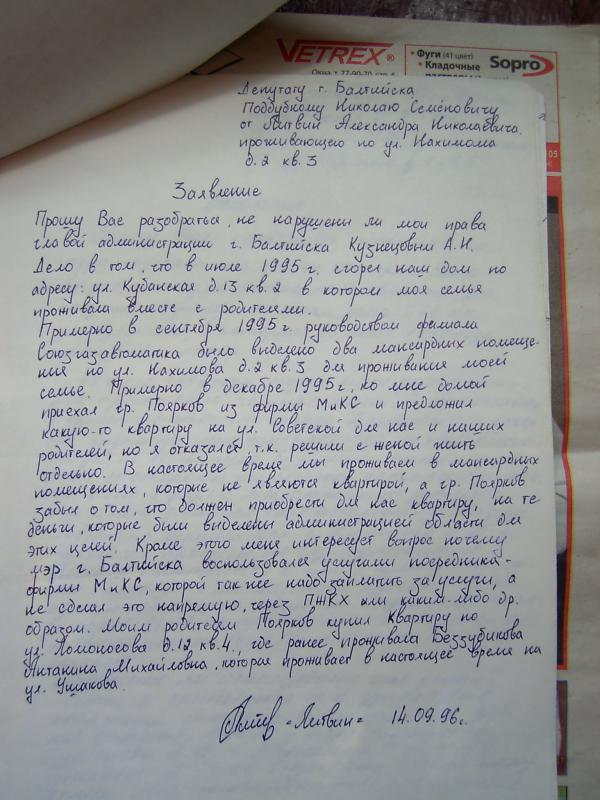 VETREX®
Окна, т. 77-90-70, стр. 5
• Фуги (41 цвет)
• Кладочные
Sopro
05
Депутату г. Балтийска
Поддубному Николаю Семёновичу
от Литвин Александра Николаевича,
проживающего по ул. Нахимома
д.2 кв.3
Заявление
Прошу Вас разобраться, не нарушены ли мои права
главой администрации г. Балтийска Кузнецовым А.Н.
Дело в том, что в июле 1995 г. сгорел наш дом по
адресу: ул. Кубанская д.13 кв.2 в котором моя семья
проживала вместе с родителями.
Примерно в сентября 1995 г. руководством филиала
Союзгазавтоматика было выделено два мансардных помеще-
ния по ул. Нахимова д.2 кв.3 для проживания моей
семье. Примерно в декабре 1995 г, ко мне домой
приехал гр. Поярков из фирмы МиКС и предложил
какую-то квартиру на ул. Советской для нас и наших
родителей, но я отказался, т.к. решили с женой жить
отдельно. В настоящее время мы проживаем в мансардных
помещениях, которие не являются квартирой, а гр. Поярков
забыл о том, что должен приобрести для нас квартиру, на те
деньги, которие были выделены администрацией области для
этих целей. Кроме этого меня интересует вопрос почему
мэр г. Балтийска воспользовался услугами посредника-
фирмы МиКС, которой так же надо заплатить за услуги, а
не сделал это напрямую, через ПЖКХ или каким-либо др.
образом. Моим родителям Поярков купил квартиру по
ул. Ломоносова д.12 кв.4., где ранее проживала Беззубикова
Антанина Михайловна, которая проживает в настоящее время на
ул. Ушакова.
«Литвин» 14.09.96г.